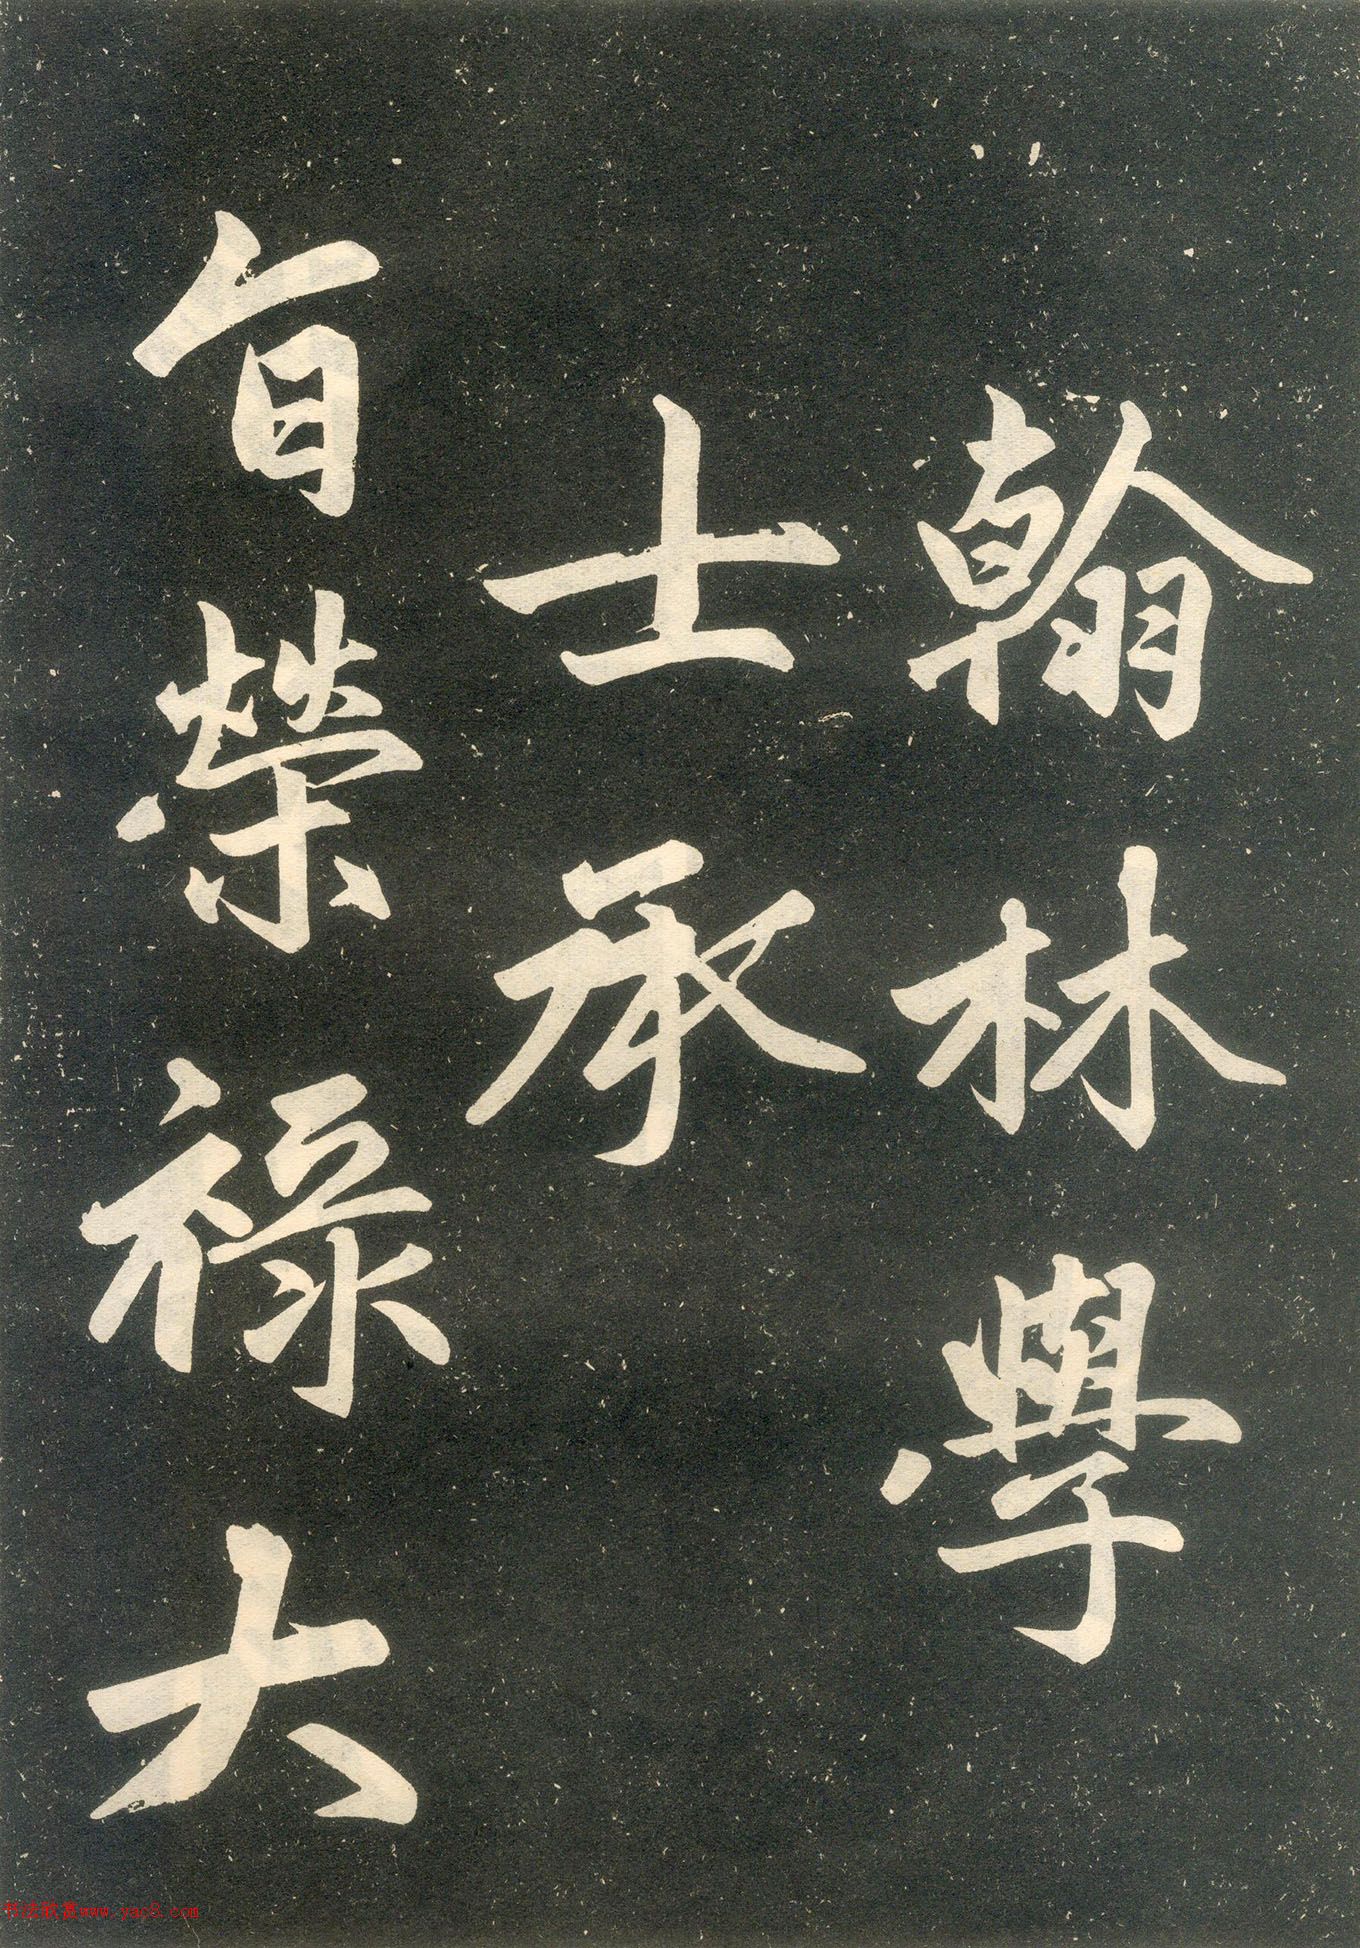 翰林學
士承
旨榮禄大
书法www.yac8.com